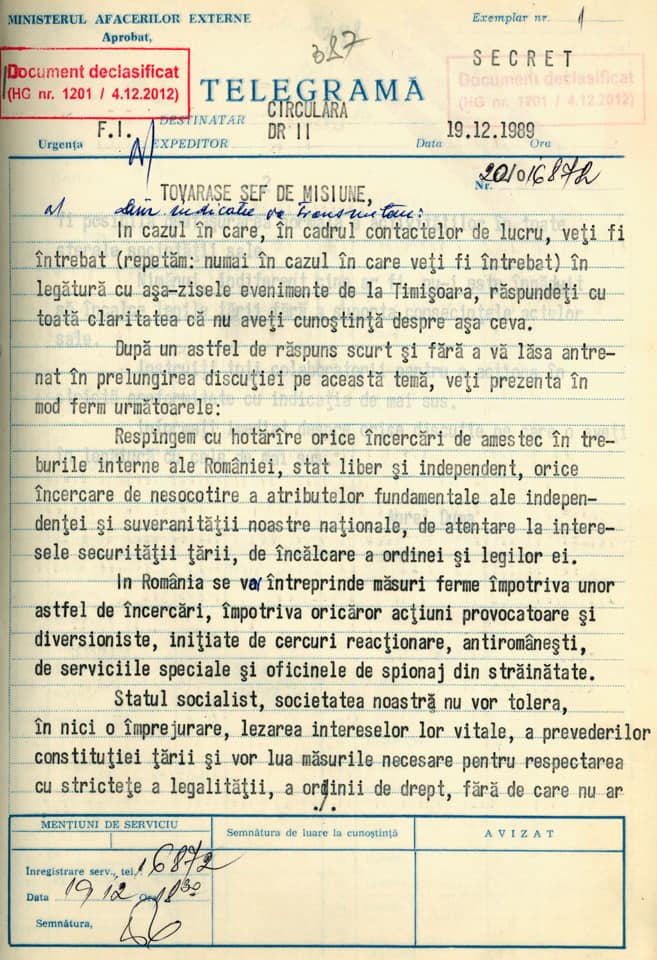 MINISTERUL AFACERILOR EXTERNE
Aprobat,
Exemplar nr. 1
387
SECRET
Document declasificat
(HG nr. 1201 / 4.12.2012)
Document declasificat
(HG nr. 1201 / 4.12.2012)
TELEGRAMĂ
CIRCULARA
F.I. DESTINATAR
DR II 19.12.1989
Urgența EXPEDITOR Data Ora
Nr. 20/016872
TOVARASE SEF DE MISIUNE,
a/ Din indicatie va transmitem:
In cazul în care, în cadrul contactelor de lucru, veți fi
întrebat (repetăm: numai în cazul în care veți fi întrebat) în
legătură cu așa-zisele evenimente de la Timișoara, răspundeți cu
toată claritatea că nu aveți cunoștință despre așa ceva.
După un astfel de răspuns scurt și fără a vă lăsa antre-
nat în prelungirea discuției pe această temă, veți prezenta în
mod ferm următoarele:
Respingem cu hotărîre orice încercări de amestec în tre-
burile interne ale României, stat liber și independent, orice
încercare de nesocotire a atributelor fundamentale ale indepen-
denței și suveranității noastre naționale, de atentare la intere-
sele securității țării, de încălcare a ordinei și legilor ei.
In România se va întreprinde măsuri ferme împotriva unor
astfel de încercări, împotriva oricăror acțiuni provocatoare și
diversioniste, inițiate de cercuri reacționare, antiromânești,
de serviciile speciale și oficinele de spionaj din străinătate.
Statul socialist, societatea noastră nu vor tolera,
în nici o împrejurare, lezarea intereselor lor vitale, a prevederilor
constituției țării și vor lua măsurile necesare pentru respectarea
cu strictețe a legalității, a ordinii de drept, fără de care nu ar
./.
MENȚIUNI DE SERVICIU
Semnătura de luare la cunoștință
AVIZAT
Inregistrare serv., tel. 16872
Data 19 12 Ora 18 30
Semnătura,